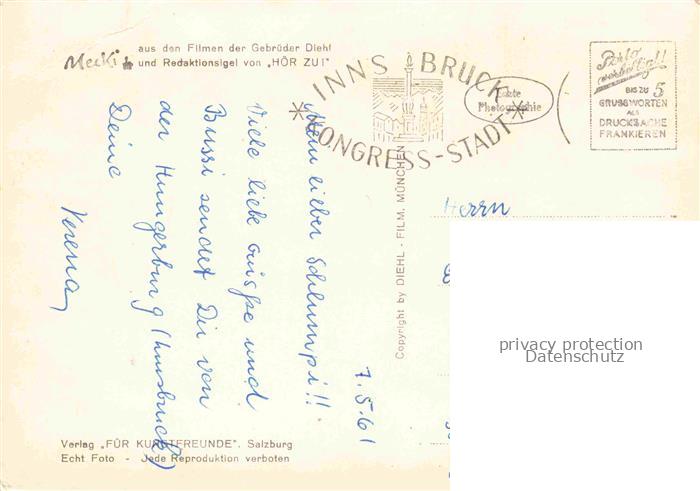 Mecki aus den Filmen der Gebrüder Diehl
und Redaktionsigel von „HÖR ZU!"
INNSBRUCK
*KONGRESS-STADT*
Echte
Photographie
Porto
verbilligt!
BIS ZU 5
GRUSSWORTEN
ALS
DRUCKSACHE
FRANKIEREN
Copyright by DIEHL - FILM, MÜNCHEN
7.5.61
Mein lieber Schlumpi!!
Viele liebe Grüsse und
Bussi sendet Dir von
der Hungerburg (Innsbruck)
Deine
Verena
Herrn
privacy protection
Datenschutz
Verlag „FÜR KUNSTFREUNDE", Salzburg
Echt Foto - Jede Reproduktion verboten